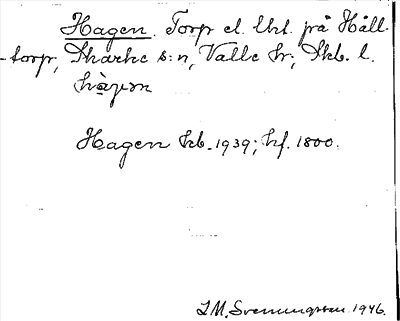 Hagen. Torp el. Utl. på Håll-
torp, Skarke s:n, Valle hr; Skb. l.
hàgen
Hagen kb. 1939; hf. 1800.
I.M. Svenningsson 1946.